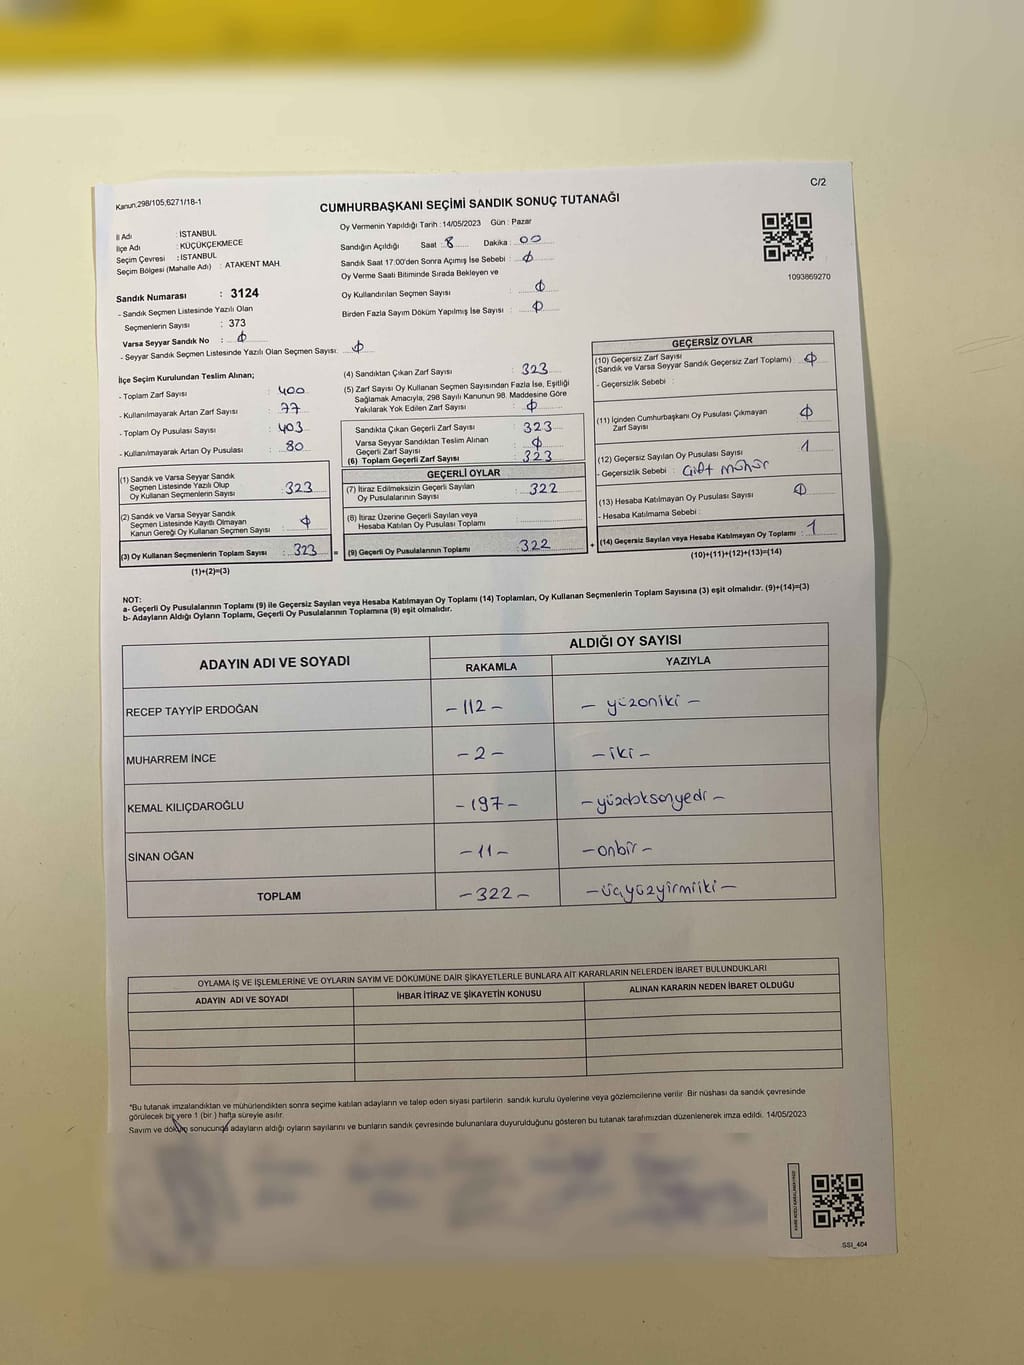 C/2
Kanun:298/105;6271/18-1
CUMHURBAŞKANI SEÇİMİ SANDIK SONUÇ TUTANAĞI
İl Adı : İSTANBUL
İlçe Adı : KÜÇÜKÇEKMECE
Seçim Çevresi : İSTANBUL
Seçim Bölgesi (Mahalle Adı) : ATAKENT MAH.
Oy Vermenin Yapıldığı Tarih : 14/05/2023 Gün : Pazar
Sandığın Açıldığı Saat 8 Dakika : 00
Sandık Saat 17:00'den Sonra Açımış İse Sebebi : Φ
Oy Verme Saati Bitiminde Sırada Bekleyen ve
Oy Kullandırılan Seçmen Sayısı : Φ
Birden Fazla Sayım Döküm Yapılmış İse Sayısı : Φ
1093869270
Sandık Numarası : 3124
- Sandık Seçmen Listesinde Yazılı Olan
Seçmenlerin Sayısı : 373
Varsa Seyyar Sandık No : Φ
- Seyyar Sandık Seçmen Listesinde Yazılı Olan Seçmen Sayısı: Φ
İlçe Seçim Kurulundan Teslim Alınan;
- Toplam Zarf Sayısı : 400
- Kullanılmayarak Artan Zarf Sayısı : 77
- Toplam Oy Pusulası Sayısı : 403
- Kullanılmayarak Artan Oy Pusulası : 80
(1) Sandık ve Varsa Seyyar Sandık
Seçmen Listesinde Yazılı Olup
Oy Kullanan Seçmenlerin Sayısı : 323
(2) Sandık ve Varsa Seyyar Sandık
Seçmen Listesinde Kayıtlı Olmayan
Kanun Gereği Oy Kullanan Seçmen Sayısı : Φ
(3) Oy Kullanan Seçmenlerin Toplam Sayısı : 323 =
(1)+(2)=(3)
(4) Sandıktan Çıkan Zarf Sayısı : 323
(5) Zarf Sayısı Oy Kullanan Seçmen Sayısından Fazla İse, Eşitliği
Sağlamak Amacıyla, 298 Sayılı Kanunun 98. Maddesine Göre
Yakılarak Yok Edilen Zarf Sayısı : Φ
Sandıkta Çıkan Geçerli Zarf Sayısı : 323
Varsa Seyyar Sandıktan Teslim Alınan
Geçerli Zarf Sayısı : Φ
(6) Toplam Geçerli Zarf Sayısı : 323
GEÇERLİ OYLAR
(7) İtiraz Edilmeksizin Geçerli Sayılan
Oy Pusulalarının Sayısı : 322
(8) İtiraz Üzerine Geçerli Sayılan veya
Hesaba Katılan Oy Pusulası Toplamı
(9) Geçerli Oy Pusulalarının Toplamı : 322 +
GEÇERSİZ OYLAR
(10) Geçersiz Zarf Sayısı
(Sandık ve Varsa Seyyar Sandık Geçersiz Zarf Toplamı) : Φ
- Geçersizlik Sebebi :
(11) İçinden Cumhurbaşkanı Oy Pusulası Çıkmayan
Zarf Sayısı : Φ
(12) Geçersiz Sayılan Oy Pusulası Sayısı : 1
- Geçersizlik Sebebi : Çift mühür
(13) Hesaba Katılmayan Oy Pusulası Sayısı : Φ
- Hesaba Katılmama Sebebi :
(14) Geçersiz Sayılan veya Hesaba Katılmayan Oy Toplamı : 1
(10)+(11)+(12)+(13)=(14)
NOT:
a- Geçerli Oy Pusulalarının Toplamı (9) ile Geçersiz Sayılan veya Hesaba Katılmayan Oy Toplamı (14) Toplamları, Oy Kullanan Seçmenlerin Toplam Sayısına (3) eşit olmalıdır. (9)+(14)=(3)
b- Adayların Aldığı Oyların Toplamı, Geçerli Oy Pusulalarının Toplamına (9) eşit olmalıdır.
ADAYIN ADI VE SOYADI ALDIĞI OY SAYISI
RAKAMLA YAZIYLA
RECEP TAYYİP ERDOĞAN – 112 – – yüzoniki –
MUHARREM İNCE – 2 – – iki –
KEMAL KILIÇDAROĞLU – 197 – – yüzdoksanyedi –
SİNAN OĞAN – 11 – – onbir –
TOPLAM – 322 – – üçyüzyirmiiki –
OYLAMA İŞ VE İŞLEMLERİNE VE OYLARIN SAYIM VE DÖKÜMÜNE DAİR ŞİKAYETLERLE BUNLARA AİT KARARLARIN NELERDEN İBARET BULUNDUKLARI
ADAYIN ADI VE SOYADI İHBAR İTİRAZ VE ŞİKAYETİN KONUSU ALINAN KARARIN NEDEN İBARET OLDUĞU
*Bu tutanak imzalandıktan ve mühürlendikten sonra seçime katılan adayların ve talep eden siyasi partilerin sandık kurulu üyelerine veya gözlemcilerine verilir. Bir nüshası da sandık çevresinde
görülecek bir yere 1 (bir ) hafta süreyle asılır.
Sayım ve döküm sonucunda adayların aldığı oyların sayılarını ve bunların sandık çevresinde bulunanlara duyurulduğunu gösteren bu tutanak tarafımızdan düzenlenerek imza edildi. 14/05/2023
SSI_404